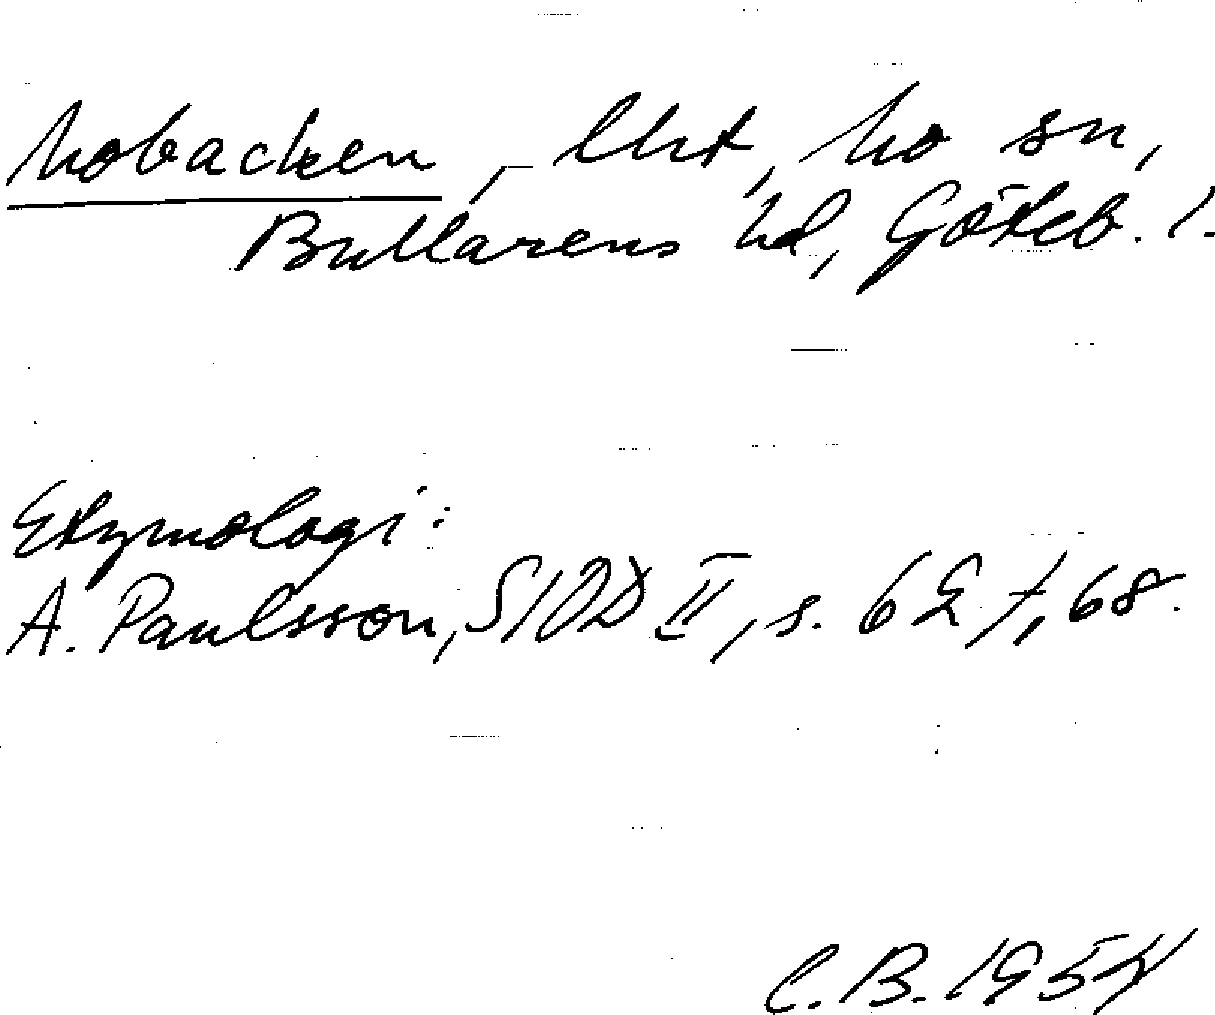 Mobacken, lht, Mo sn,
Bullarens hd, Göteb. l.
Etymologi:
A. Paulsson, SIOD II, s. 62 f, 68.
C.B. 1954